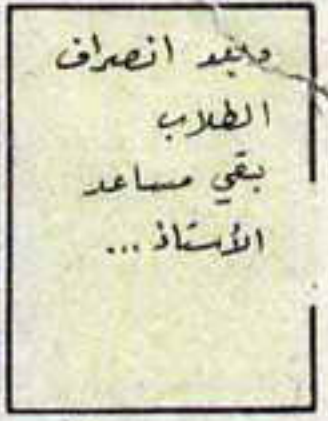 وبعد انصراف
الطلاب
بقي مساعد
الأستاذ...